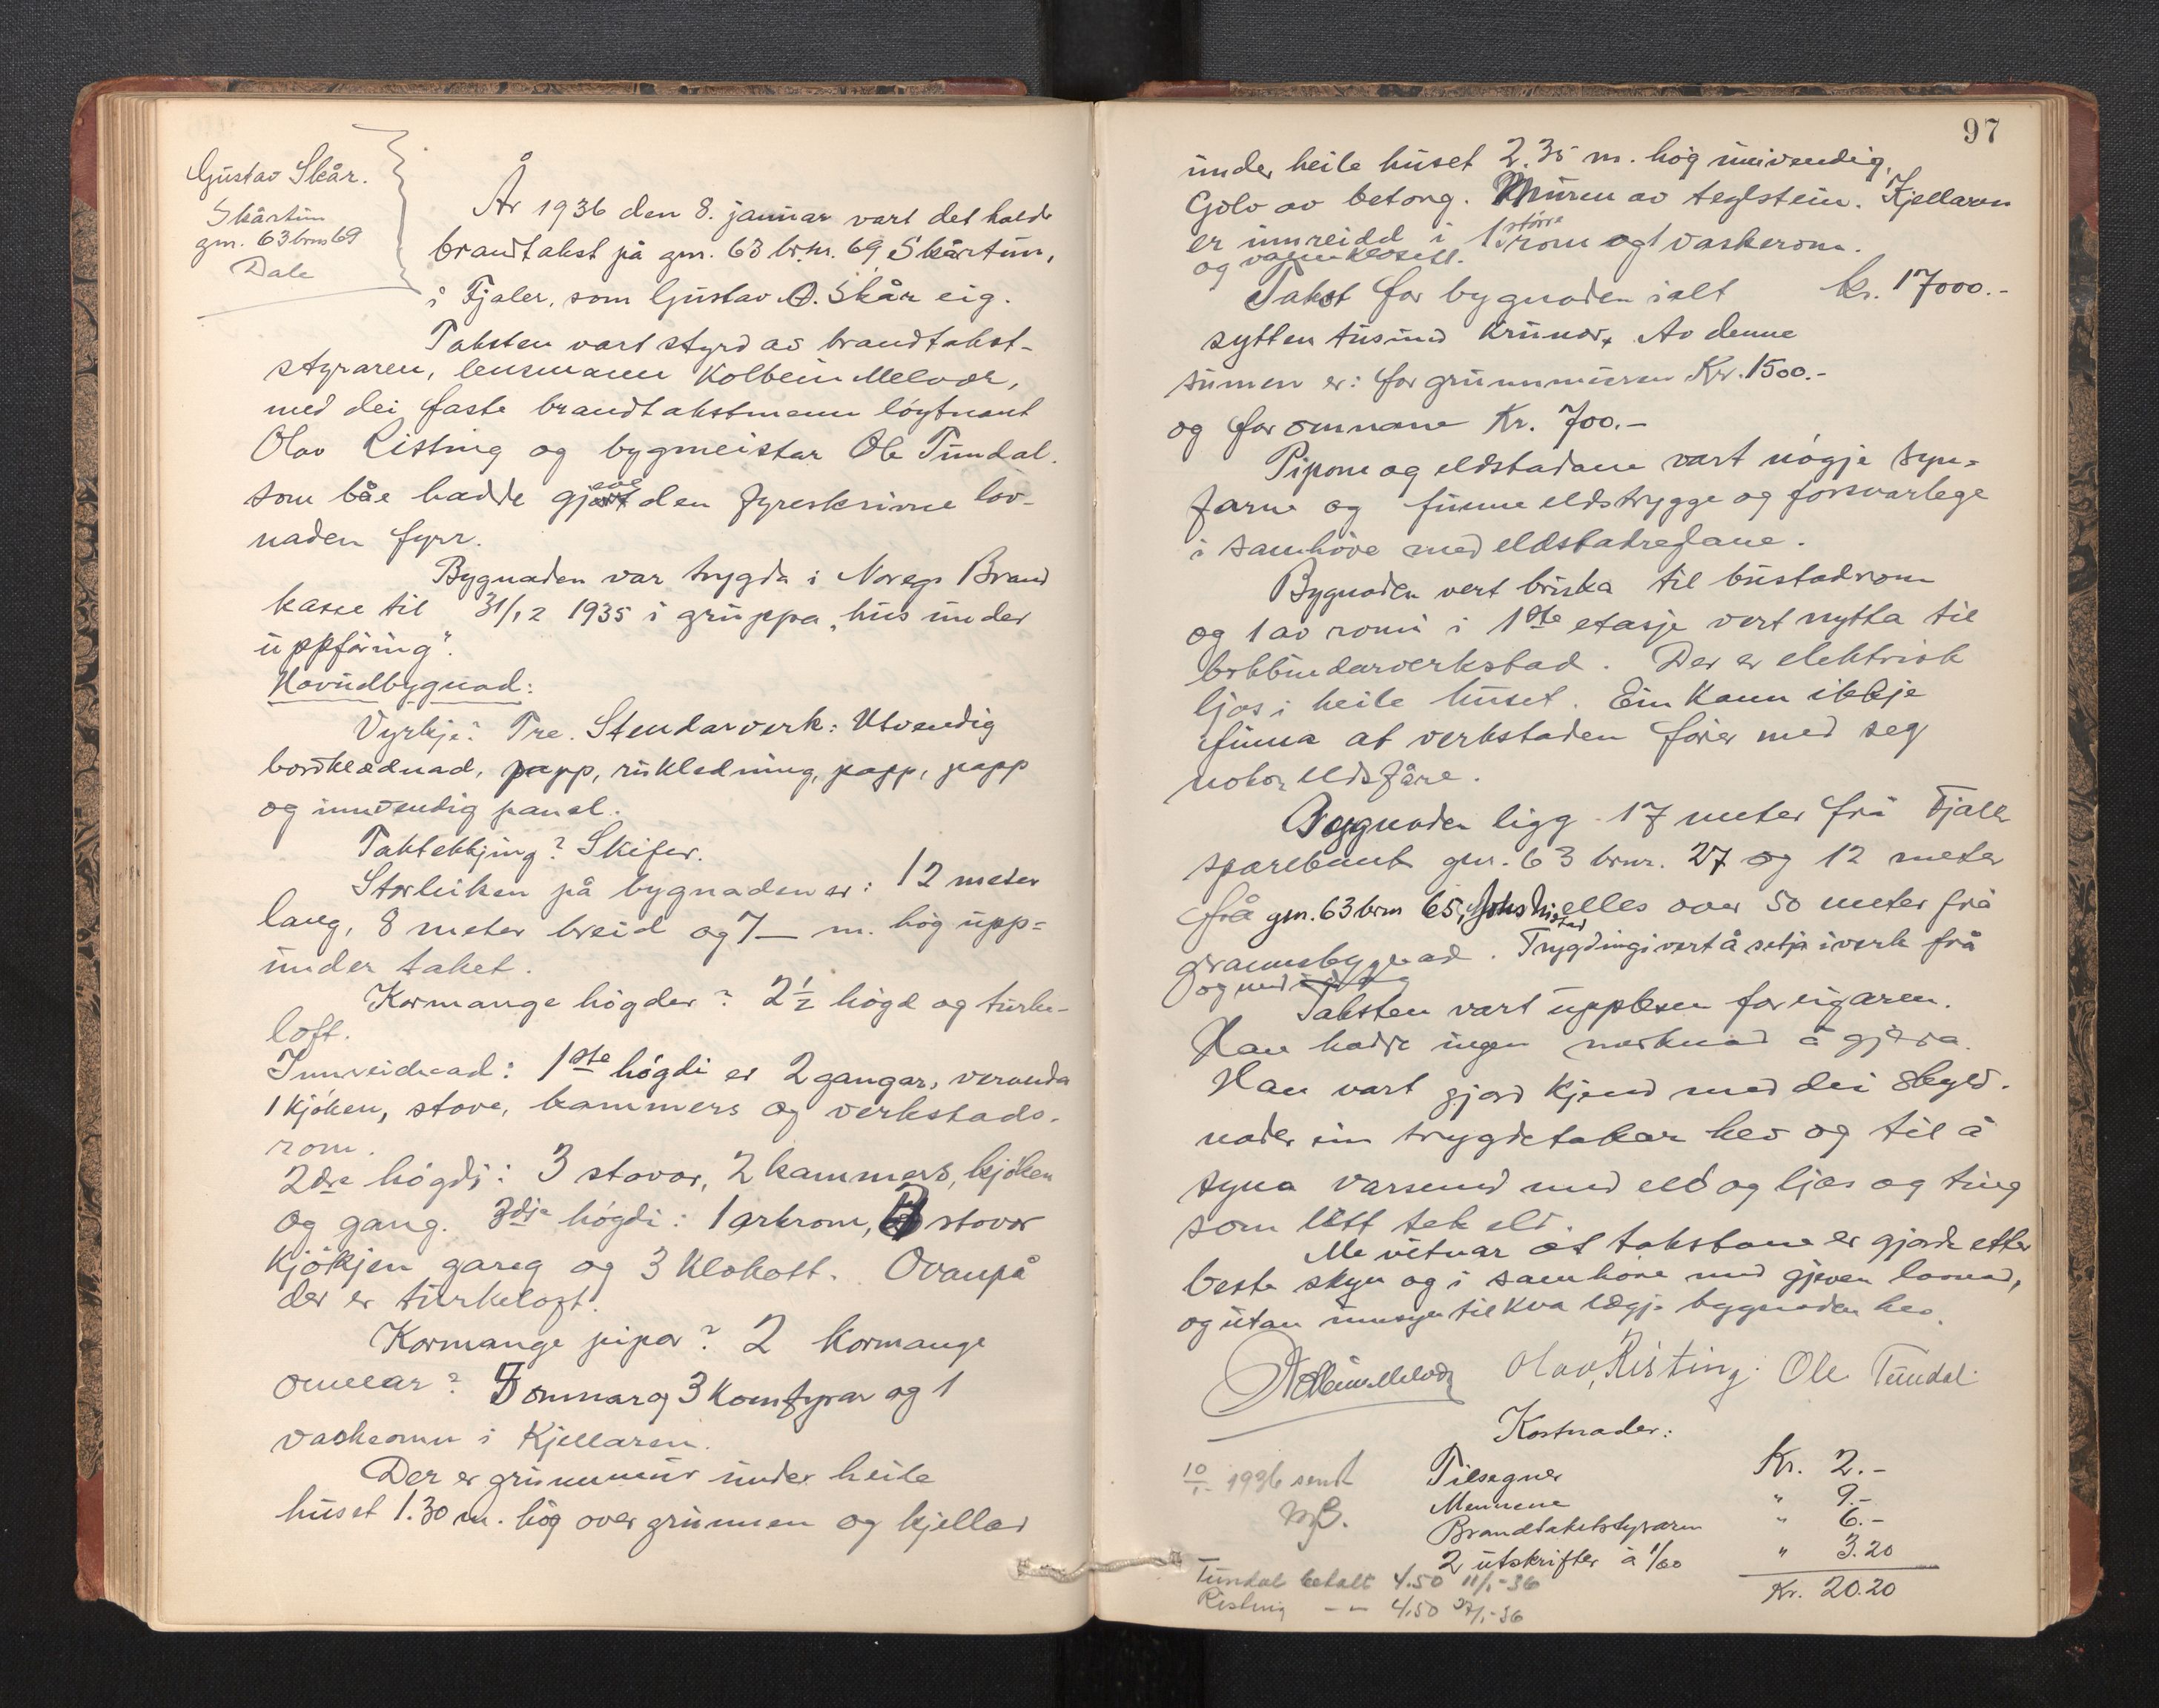 Gustav Skår.
Skårtun
gnr. 63 brnr 69
Dale
År 1936 den 8. januar vart det halde
brandtakst på gnr. 63 br.nr. 69 Skårtun,
i Fjaler, som Gustav O. Skår eig.
Taksten vart styrd av brandtakst-
styraren, lensmann Kolbein Melvær,
med dei faste brandtakstmenn löytnant
Olav Risting og bygmeistar Ole Tundal.
som båe hadde gjeve den fyreskrivne lov-
naden fyrr.
Bygnaden var trygda i Noregs Brand
kasse til 31/12 1935 i gruppa "hus under
uppföring".
Hovudbygnad:
Vyrkje? Tre. Stendarverk: Utvendig
bordklædnad, papp, rukledning, papp, papp
og innvendig panel.
Taktekkjing? Skifer.
Storleiken på bygnaden er: 12 meter
lang, 8 meter breid og 7 — m. hög upp-
under taket.
Kormange högder? 2½ högd og turke-
loft.
Innreidnad: 1ste högdi er 2 gangar, veranda
1 kjöken, stove, kammers og verkstads-
rom.
2dre högdi: 3 stovor, 2 kammers, kjöken
og gang. 3dje högdi: 1 arkrom, 3 stovor
kjökjen gang og 3 klokott. Ovanpå
der er turkeloft.
Kormange pipor? 2 Kormange
omnar? 7 omnar og 3 komfyrar og 1
vaskeomn i kjellaren.
Der er grunnmur under heile
huset 1.30 m. hög over grunnen og kjellar
97
under heile huset 2.35 m. hög innvendig.
Golv av betong. Muren av teglstein. Kjellaren
er innreidd i 1 större rom og 1 vaskerom.
og vassklosett.
Takst for bygnaden ialt kr. 17000.-
sytten tusund krunor. Av denne
sumen er: for grunnmuren Kr. 1500.-
og for omnane Kr. 700.-
Pipone og eldstadane vart nögje syn-
farne og funne eldstrygge og forsvarlege
i samhöve med eldstadreglane.
Bygnaden vert bruka til bustadrom
og 1 av romi i 1ste etasje vert nytta til
bokbindarverkstad. Der er elektrisk
ljos i heile huset. Ein kann ikkje
finna at verkstaden förer med seg
nokor eldsfåre.
Bygnaden ligg 17 meter frå Fjaler
sparebank gnr. 63 brnr. 27 og 12 meter
frå gnr. 63 brnr 65, elles over 50 meter frå
grannebygnad. Trygdingi vert å setja i verk frå
og med
Taksten vart upplesen for eigaren.
Han hadde ingen merknad å gjera.
Han vart gjord kjend med dei skyld-
nader ein trygdetakar hev og til å
syna varsemd med eld og ljos og ting
som lett tek eld.
Me vitnar at takstane er gjorde etter
beste skyn og i samhöve med gjeven lovnad,
og utan umsyn til kva lægje bygnaden hev.
Kolbein Melvær Olav Risting. Ole Tundal.
Kostnader:
10/1- 1936 sendt
NB.
Tilsegner Kr. 2.-
Mennene " 9.-
Brandtakststyraren " 6.-
2 utskrifter à 1/60 " 3.20
Kr. 20.20
Tundal betalt 4.50 11/1-36
Risting — — 4.50 27/1-36